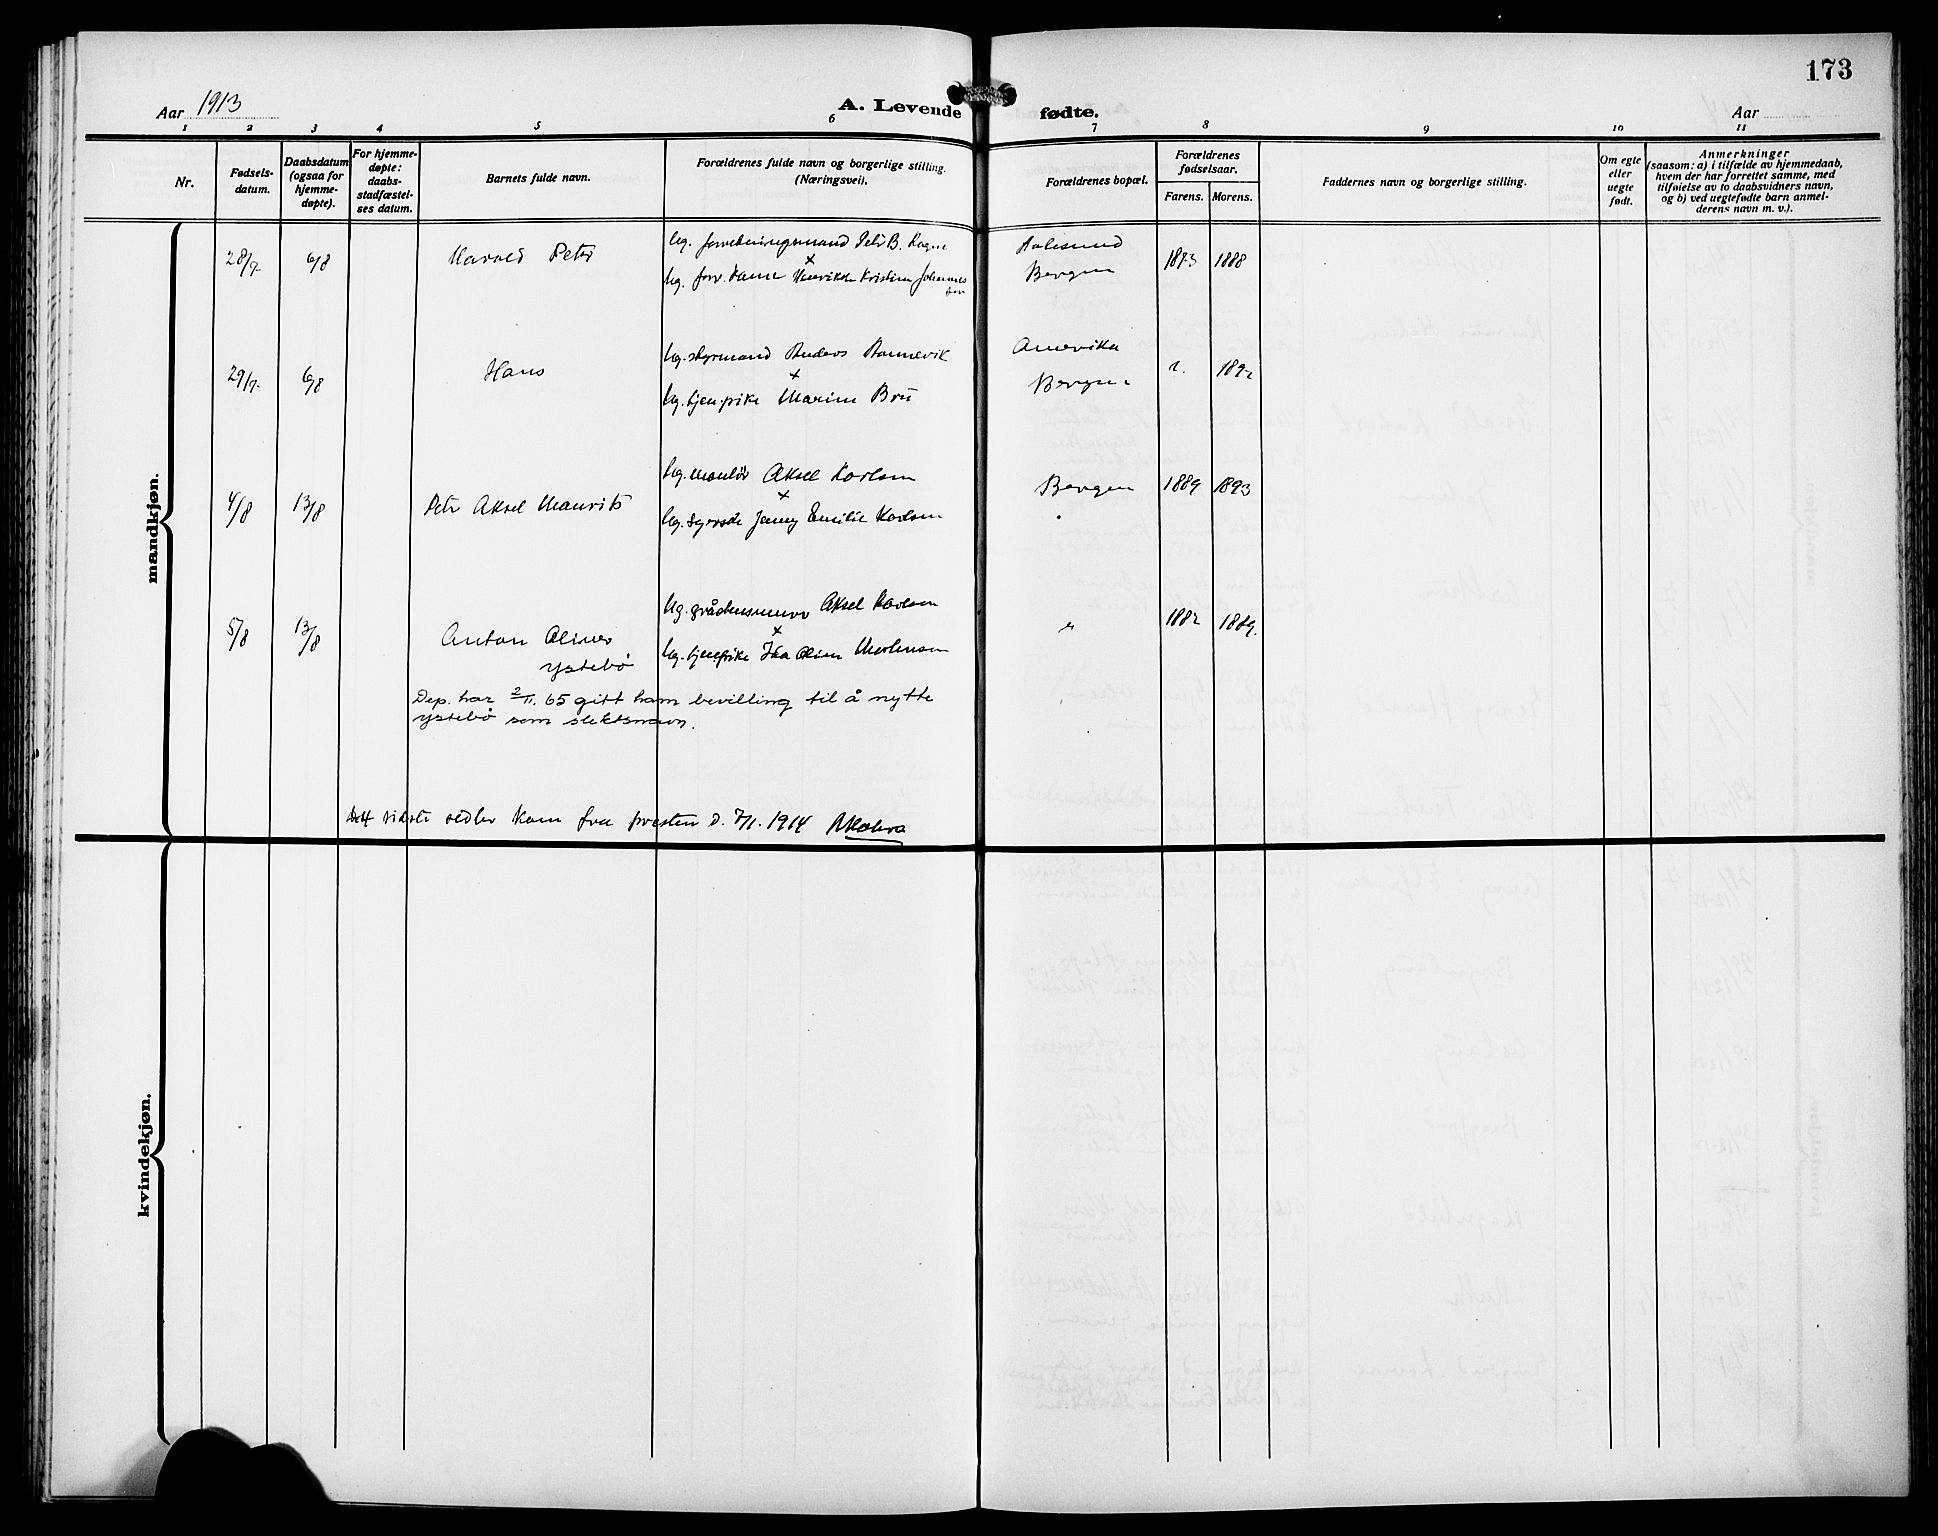 173
Aar 1913
A. Levende
fødte.
Aar
1 2 3 4 5 6 7 8 9 10 11
Nr.
Fødsels-
datum.
Daabsdatum
(ogsaa for
hjemme-
døpte).
For hjemme-
døpte:
daabs-
stadfæstel-
ses datum.
Barnets fulde navn.
Forældrenes fulde navn og borgerlige stilling.
(Næringsvei).
Forældrenes bopæl.
Forældrenes
fødselsaar.
Farens. Morens.
Faddernes navn og borgerlige stilling.
Om egte
eller
uegte
født.
Anmerkninger
(saasom: a) i tilfælde av hjemmedaab,
hvem der har forrettet samme, med
tilføielse av to daabsvidners navn,
og b) ved uegtefødte barn anmel-
derens navn m. v.).
mandkjøn.
28/7. 6/8 Harald Peter
Ug. forretningsmand Petr B.
x
Ug. forr. dame Henrikke Kristine Johannes
sen
Aalesund
Bergen
1873 1888
29/7. 6/8 Hans
Ug. styrmand Anders
x
Ug. tjen.pike Marine Brü
Amerika
Bergen
4/8 13/8 Petr Aksel Maurits
Ug. montör Aksel Karlsen
x
Ug. Jenny Emilie Karlsen
Bergen
1889 1893
5/8 13/8 Anton Oliver
ystebø
Ug. Aksel Karlsen
x
Ug. tjenepike Ida Oline Mortensen
"
1882 1889.
Dep. har 2/11. 65 gitt ham bevilling til å nytte
ystebø som slektsnavn.
sidste sedler kom fra presten d. 7/1. 1914
kvindekjøn.